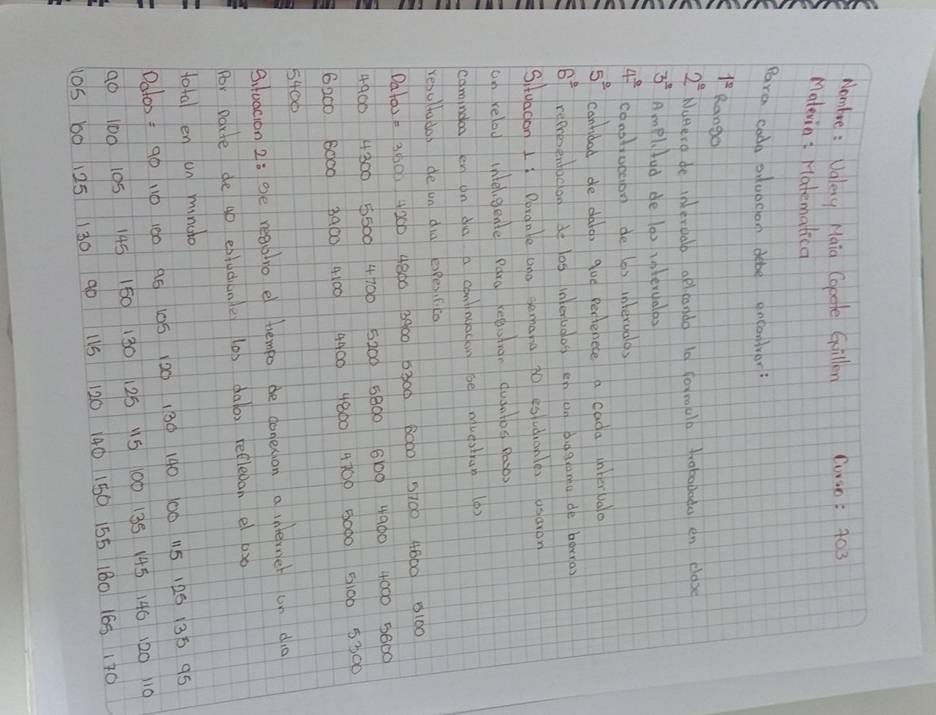 Nombre: Valery Maia Copete Guillen Curso: 703
Materia: Matematica
Para cada situacion debe encontrar:
1º Rango
2º Numero de intervalo aplicando la formula trabajada en clase
3º Amplitud de los intervalos
4º construccion de los intervalos
5º cantidad de datos que pertenece a cada intervalo
6º representacion de los intervalos en un diagrama de barras
Situacion 1: Durante una semana 30 estudiantes usaron
un reloj inteligente para registrar cuantos pasos
caminaba en un dia a continuacion se muestran los
resultados de un dia especifico
Datos = 3500 4200 4800 3900 5300 6000 5700 4600 5100
4900 4300 5500 4700 5200 5800 6100 4900 4000 5600
6200 6000 3900 4100 4400 4800 4700 5000 5100 5300
5400
Situacion 2: se registro el tiempo de conexion a internet un dia
Por parte de 40 estudiantes los datos reflejan el
total en un minuto
Datos = 90 110 100 95 105 120 130 140 100 115 125 135 95
90 100 105 145 150 130 125 115 100 135 145 140 120 110
105 60 125 130 90 115 120 140 150 155 160 165 170